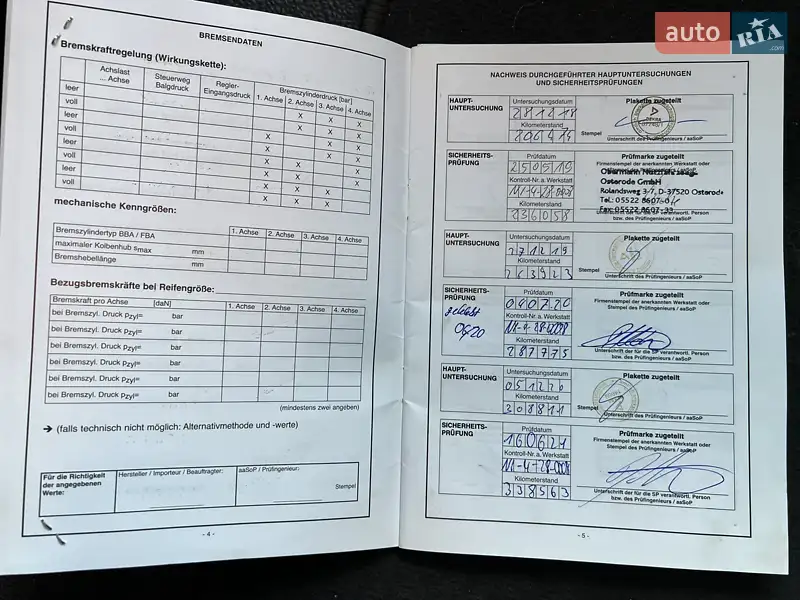 auto RIA .com
BREMSENDATEN
Bremskraftregelung (Wirkungskette):
Achslast ... Achse
Steuerweg Balgdruck
Regler-Eingangsdruck
Bremszylinderdruck [bar]
1. Achse 2. Achse 3. Achse 4. Achse
leer X X X
voll X X
leer X X X
voll X X X
leer X X X
voll X X X
leer X X X
voll X X
mechanische Kenngrößen:
1. Achse 2. Achse 3. Achse 4. Achse
Bremszylindertyp BBA / FBA
maximaler Kolbenhub smax mm
Bremshebellänge mm
Bezugsbremskräfte bei Reifengröße:
Bremskraft pro Achse [daN] 1. Achse 2. Achse 3. Achse 4. Achse
bei Bremszyl. Druck pzyl= bar
bei Bremszyl. Druck pzyl= bar
bei Bremszyl. Druck pzyl= bar
bei Bremszyl. Druck pzyl= bar
bei Bremszyl. Druck pzyl= bar
bei Bremszyl. Druck pzyl= bar
(mindestens zwei angeben)
➔ (falls technisch nicht möglich: Alternativmethode und -werte)
Für die Richtigkeit der angegebenen Werte:
Hersteller / Importeur / Beauftragter:
aaSoP / Prüfingenieur:
Stempel
- 4 -
NACHWEIS DURCHGEFÜHRTER HAUPTUNTERSUCHUNGEN
UND SICHERHEITSPRÜFUNGEN
HAUPT-
UNTERSUCHUNG
Untersuchungsdatum
281218
Kilometerstand
Plakette zugeteilt
Stempel
Unterschrift des Prüfingenieurs / aaSoP
SICHERHEITS-
PRÜFUNG
Prüfdatum
250519
Kontroll-Nr. a. Werkstatt
Kilometerstand
236058
Prüfmarke zugeteilt
Firmenstempel der anerkannten Werkstatt oder
Osterode GmbH
Rolandsweg 3-7, D-37520 Osterode
Tel.: 05522 8607-0
Fax: 05522 8607-33
Unterschrift der für die SP verantwortl. Person
bzw. des Prüfingenieurs / aaSoP
HAUPT-
UNTERSUCHUNG
Untersuchungsdatum
271219
Kilometerstand
263923
Plakette zugeteilt
Stempel
Unterschrift des Prüfingenieurs / aaSoP
SICHERHEITS-
PRÜFUNG
06/20
Prüfdatum
040720
Kontroll-Nr. a. Werkstatt
Kilometerstand
287775
Prüfmarke zugeteilt
Firmenstempel der anerkannten Werkstatt oder
Stempel des Prüfingenieurs / aaSoP
Unterschrift der für die SP verantwortl. Person
bzw. des Prüfingenieurs / aaSoP
HAUPT-
UNTERSUCHUNG
Untersuchungsdatum
051220
Kilometerstand
308811
Plakette zugeteilt
Stempel
Unterschrift des Prüfingenieurs / aaSoP
SICHERHEITS-
PRÜFUNG
Prüfdatum
160621
Kontroll-Nr. a. Werkstatt
Kilometerstand
338563
Prüfmarke zugeteilt
Firmenstempel der anerkannten Werkstatt oder
Stempel des Prüfingenieurs / aaSoP
Unterschrift der für die SP verantwortl. Person
bzw. des Prüfingenieurs / aaSoP
- 5 -